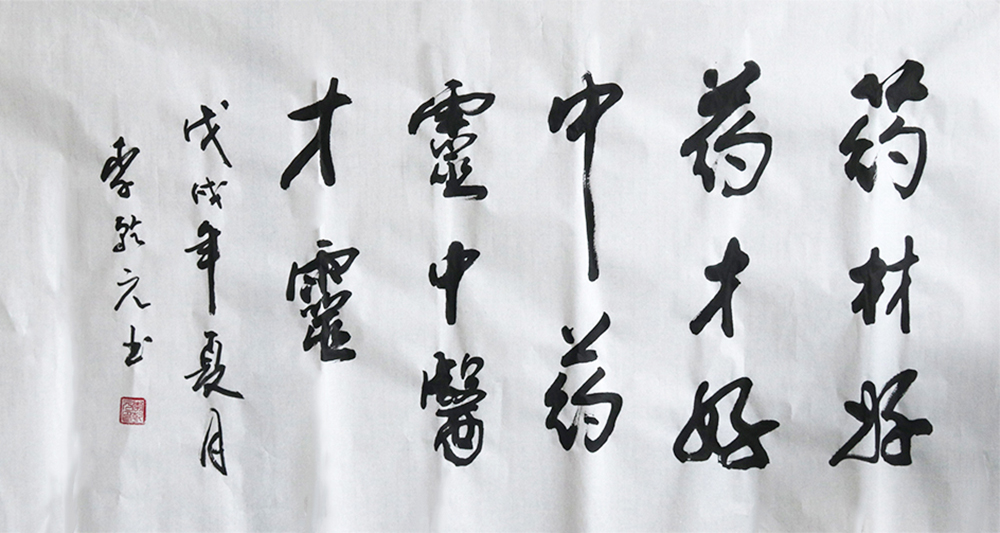 药材好
药才好
中药
靈中醫
才靈
戊戌年夏月
李乾元书